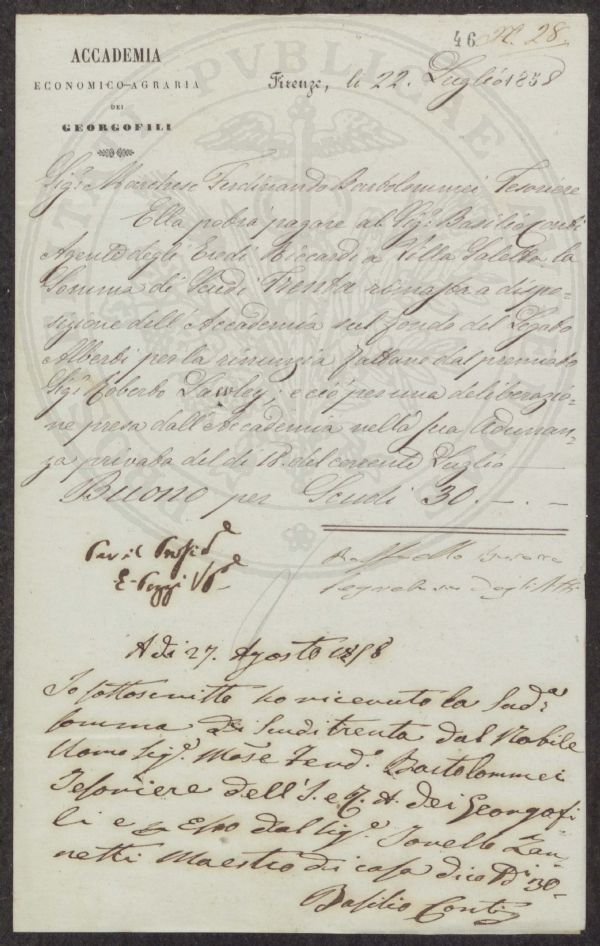 46 N. 28
ACCADEMIA
ECONOMICO-AGRARIA
DEI
GEORGOFILI
Firenze, li 22. Luglio 1858
Sigr Marchese Ferdinando Bartolommei Tesoriere
Ella potrà pagare al Sigr Basilio Conti
Agente degli Eredi Riccardi a Villa Saletta la
Somma di Scudi Trenta rimasta a dispo-
sizione dell'Accademia sul fondo del Legato
Alberti per la rinunzia fattane dal premiato
Sigr Roberto Lawley; e ciò per una deliberazio-
ne presa dall'Accademia nella sua Adunan-
za privata del dì 18. del corrente Luglio
Buono per Scudi 30.-.-
Per il Presidte
E. Poggi VPte
Raffaello
Segretario degli Atti
A dì 27. Agosto 1858
Io sottoscritto ho ricevuto la Sudta
somma di Scudi trenta dal Nobile
Uomo Sigr. Mse Ferdo. Bartolommei
Tesoriere dell'I. e R. A. dei Georgofi
li e p Esso dal Sigr. Zan-
netti Maestro di casa dico 30-
Basilio Conti
PUBLICAE